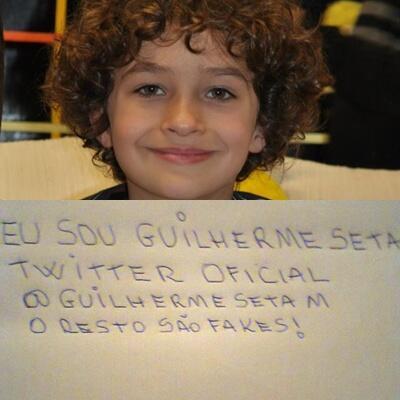 EU SOU GUILHERME SETA
TWITTER OFICIAL
@GUILHERMESETAM
O RESTO SÃO FAKES!